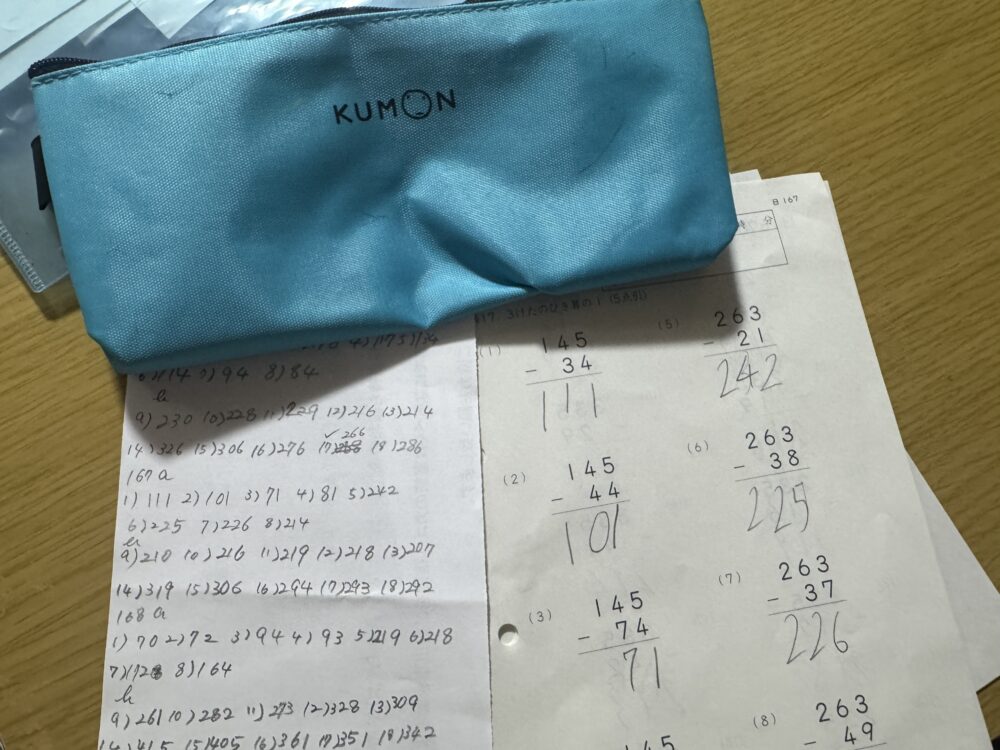 KUMON
B 167
分
1175)134
6)114 7)94 8)84
b
9)230 10)228 11)229 12)216 13)214
✓266
14)326 15)306 16)276 17) 18)286
167a
1)111 2)101 3)71 4)81 5)242
6)225 7)226 8)214
b
9)210 10)216 11)219 12)218 13)207
14)319 15)306 16)294 17)293 18)292
168a
1)70 2)72 3)94 4)93 5)219 6)218
7)172 8)164
b
9)261 10)282 11)273 12)328 13)309
14)415 15)405 16)361 17)351 18)342
3けたのひき算の1 (5点引)
(1)
145
- 34
111
(2)
145
- 44
101
(3)
145
- 74
71
145
(5)
263
- 21
242
(6)
263
- 38
225
(7)
263
- 37
226
(8)
263
- 49